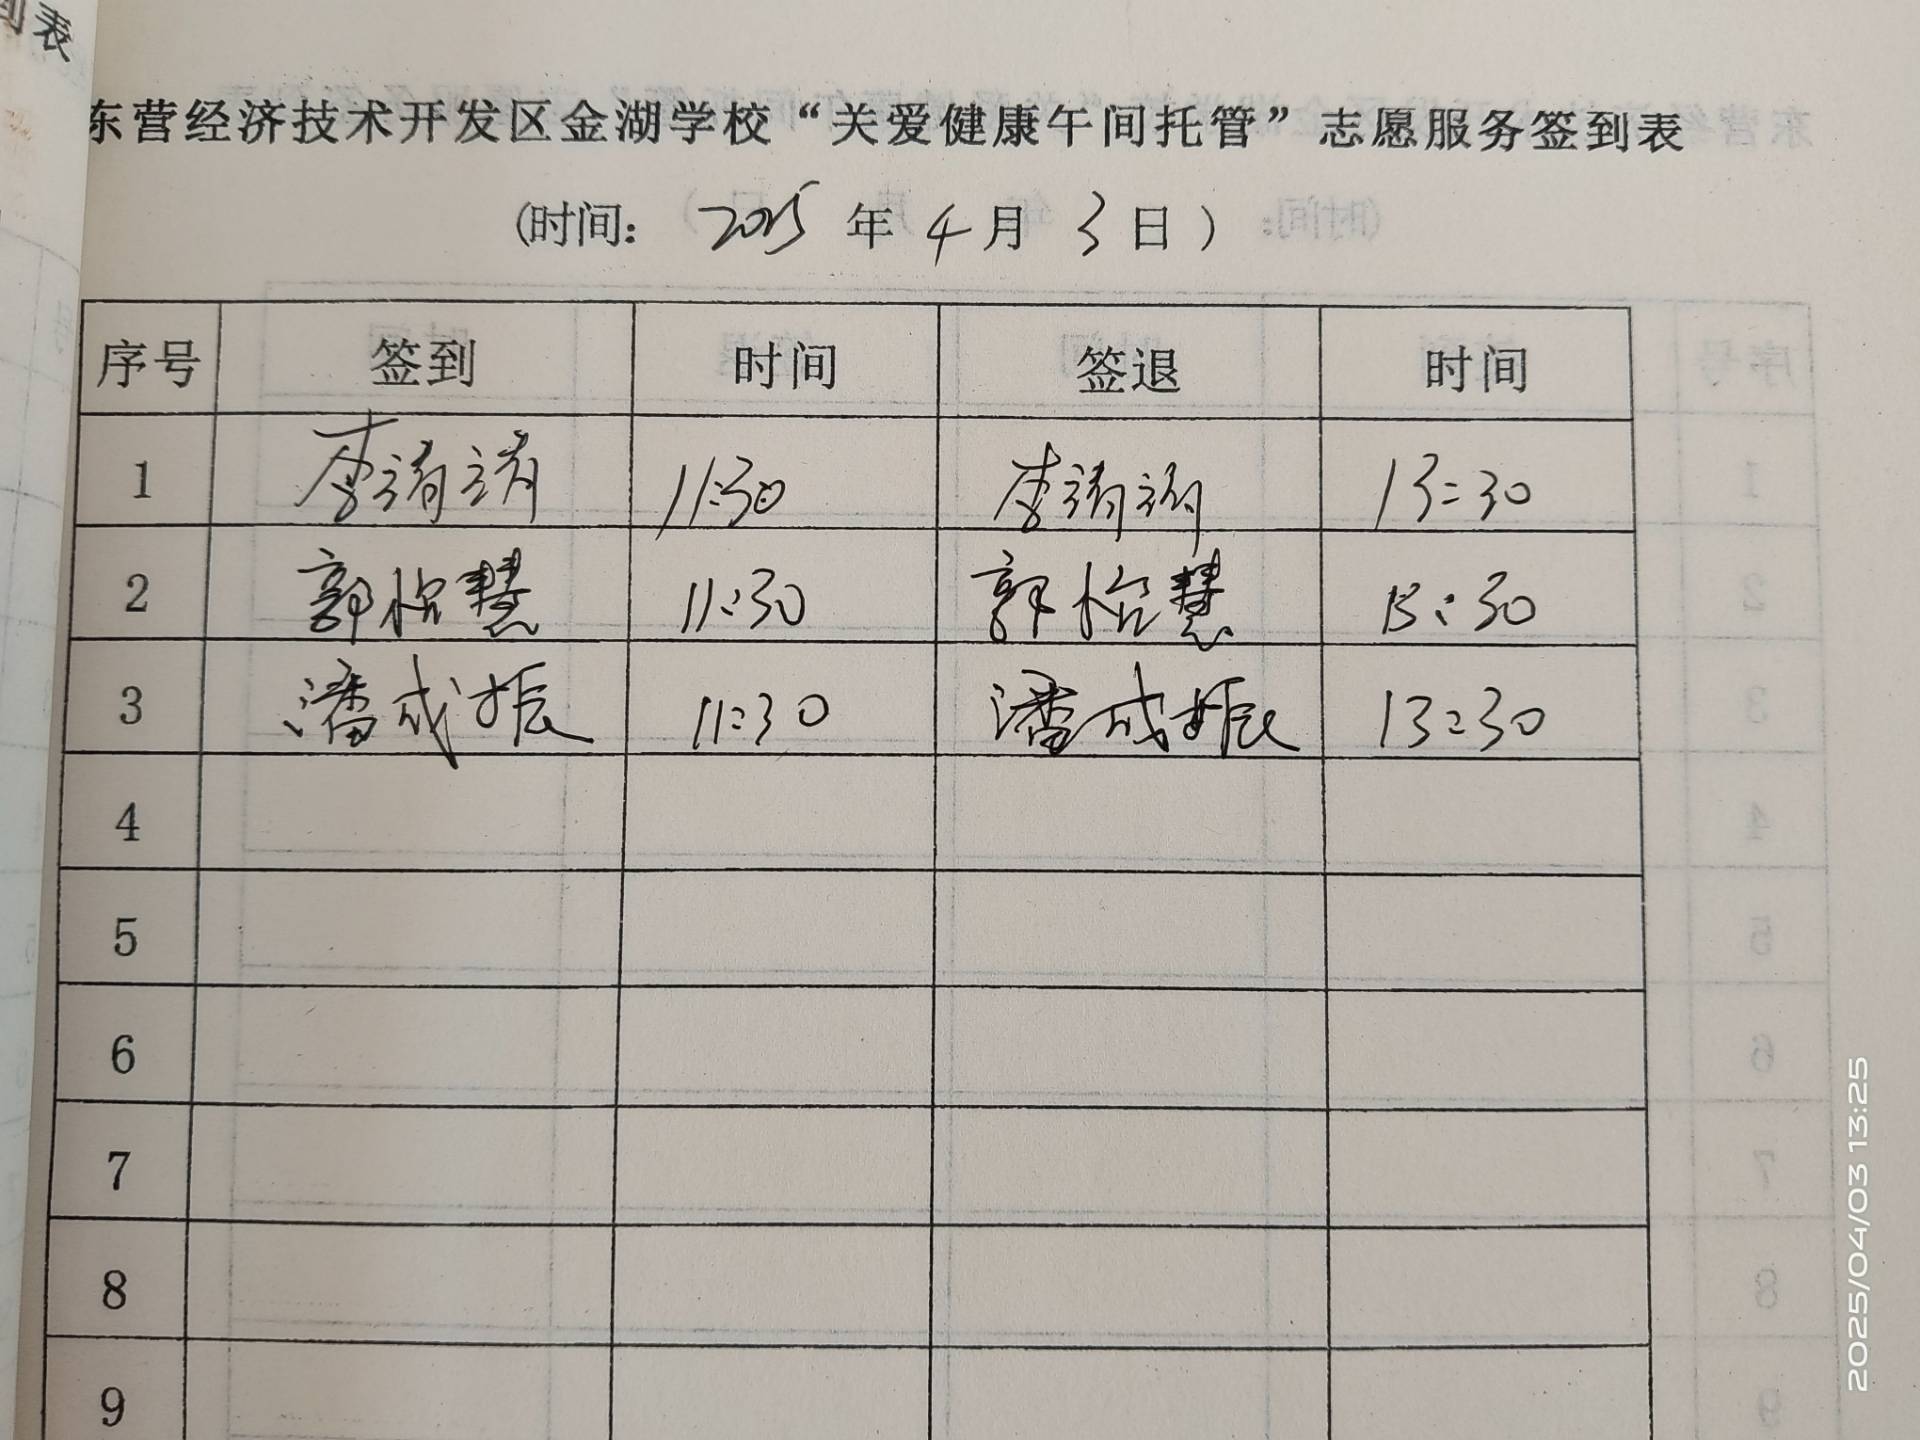 到表
东营经济技术开发区金湖学校“关爱健康午间托管”志愿服务签到表
(时间: 2025 年 4 月 3 日)
序号 签到 时间 签退 时间
1 李 11:30 李 13:30
2 郭怡慧 11:30 郭怡慧 13:30
3 潘成振 11:30 潘成振 13:30
4
5
6
7
8
9
2025/04/03 13:25